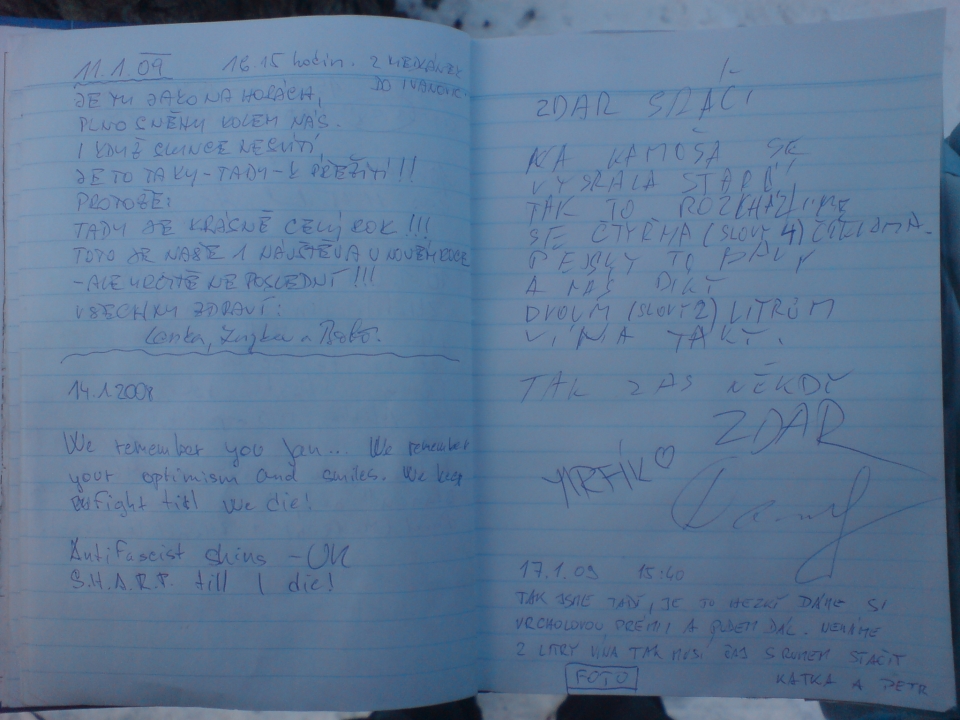 11.1.09 16.15 hodin. Z MEDLÁNEK
DO IVANOVIC.
JE TU JAKO NA HORÁCH,
PLNO SNĚHU KOLEM NÁS.
I KDYŽ SLUNCE NESVÍTÍ,
JE TO TAKY-TADY-K PŘEŽITÍ!!!
PROTOŽE:
TADY JE KRÁSNĚ CELÝ ROK!!!
TOTO JE NAŠE 1 NÁVŠTĚVA V NOVÉM ROCE
-ALE URČITĚ NE POSLEDNÍ!!!
VŠECHNY ZDRAVÍ:
Lenka, a
14.1.2009
We remember you Jan... We remember
your optimism and smiles. We keep
fight till we die!
Antifascist skins - UK
S.H.A.R.P. till I die!
ZDAR SRÁČI
NA KAMOŠA SE
VYSRALA
TAK TO
SE ČTYRMA (SLOVY 4)
PEJSKY TO
A NÁS DÍKY
DVOUM (SLOVY 2) LITRŮM
VÍNA TAKY.
TAK ZAS NĚKDY
ZDAR
JIRFÍK ♡
17.1.09 15:40
TAK JSME TADY, JE TU HEZKY DÁME SI
VRCHOLOVOU PRÉMII A PUDEM DÁL. NEMÁME
2 LITRY VÍNA TAK MUSÍ ČAJ S RUMEM STAČIT
FOTO KATKA A PETR